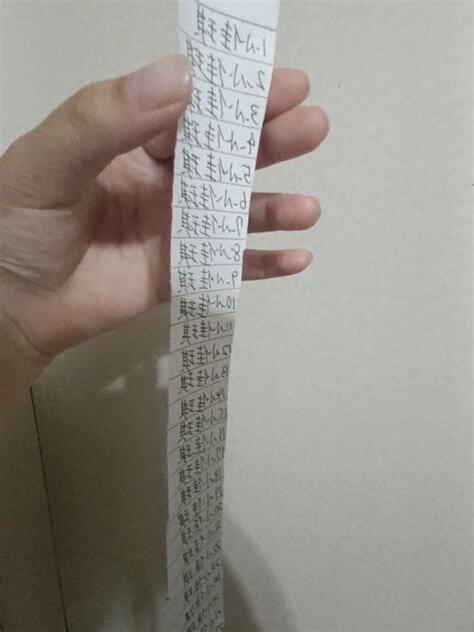 1.小佳琪
2.小佳琪
3.小佳琪
4.小佳琪
5.小佳琪
6.小佳琪
7.小佳琪
8.小佳琪
9.小佳琪
10.小佳琪
11.小佳琪
12.小佳琪
13.小佳琪
14.小佳琪
15.小佳琪
16.小佳琪
17.小佳琪
18.小佳琪
19.小佳琪
20.小佳琪